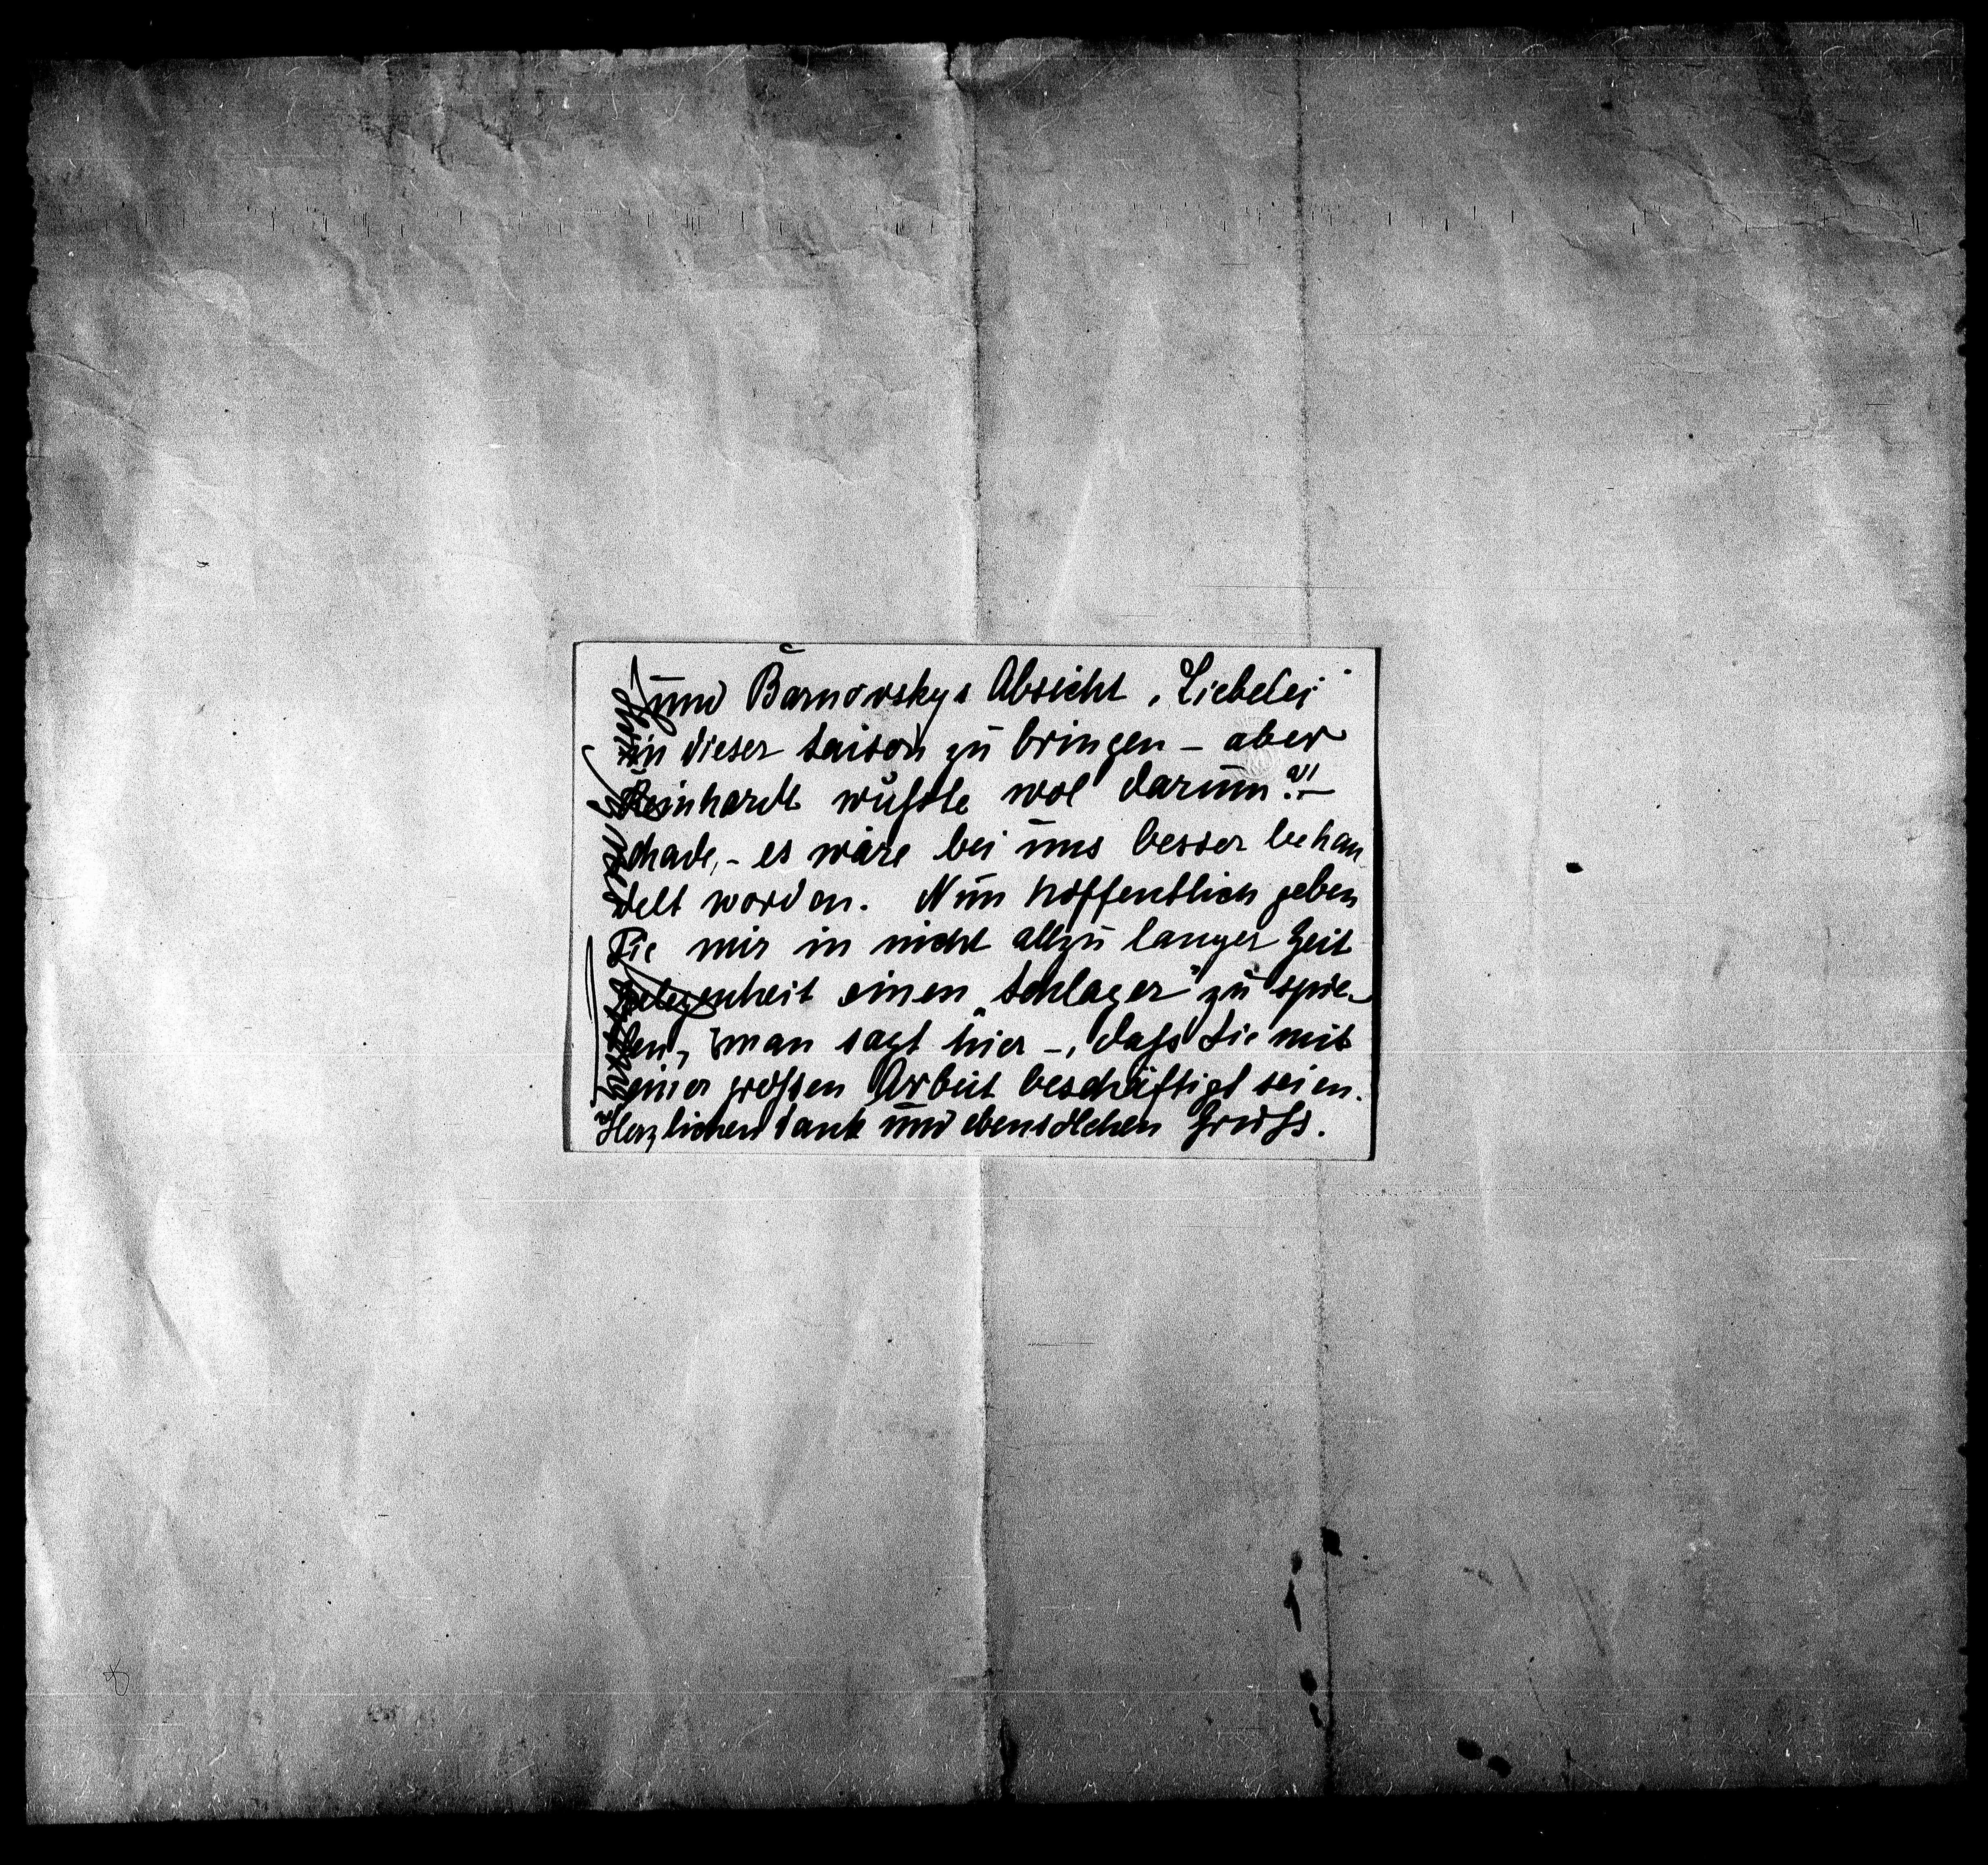 und Barnowskys Absicht „Liebelei“
in dieser Saison zu bringen – aber
Reinhardt wußte wol darum?! –
schade, – es wäre bei uns besser behan
delt worden. Nun hoffentlich geben
Sie mir in nicht allzu langer Zeit
Gelegenheit einen „Schlager“ zu spie-
len, man sagt hier –, daß Sie mit
einer großen Arbeit beschäftigt seien.
Herzlichen Dank und ebensolchen Gruß.